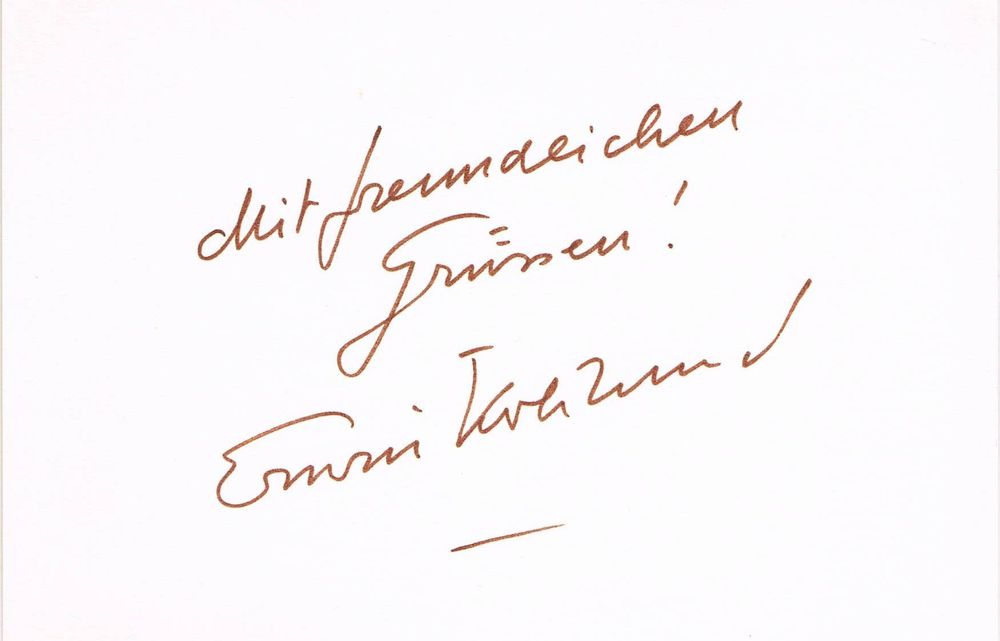 Mit freundlichen
Grüssen!
Erwin Kohlund